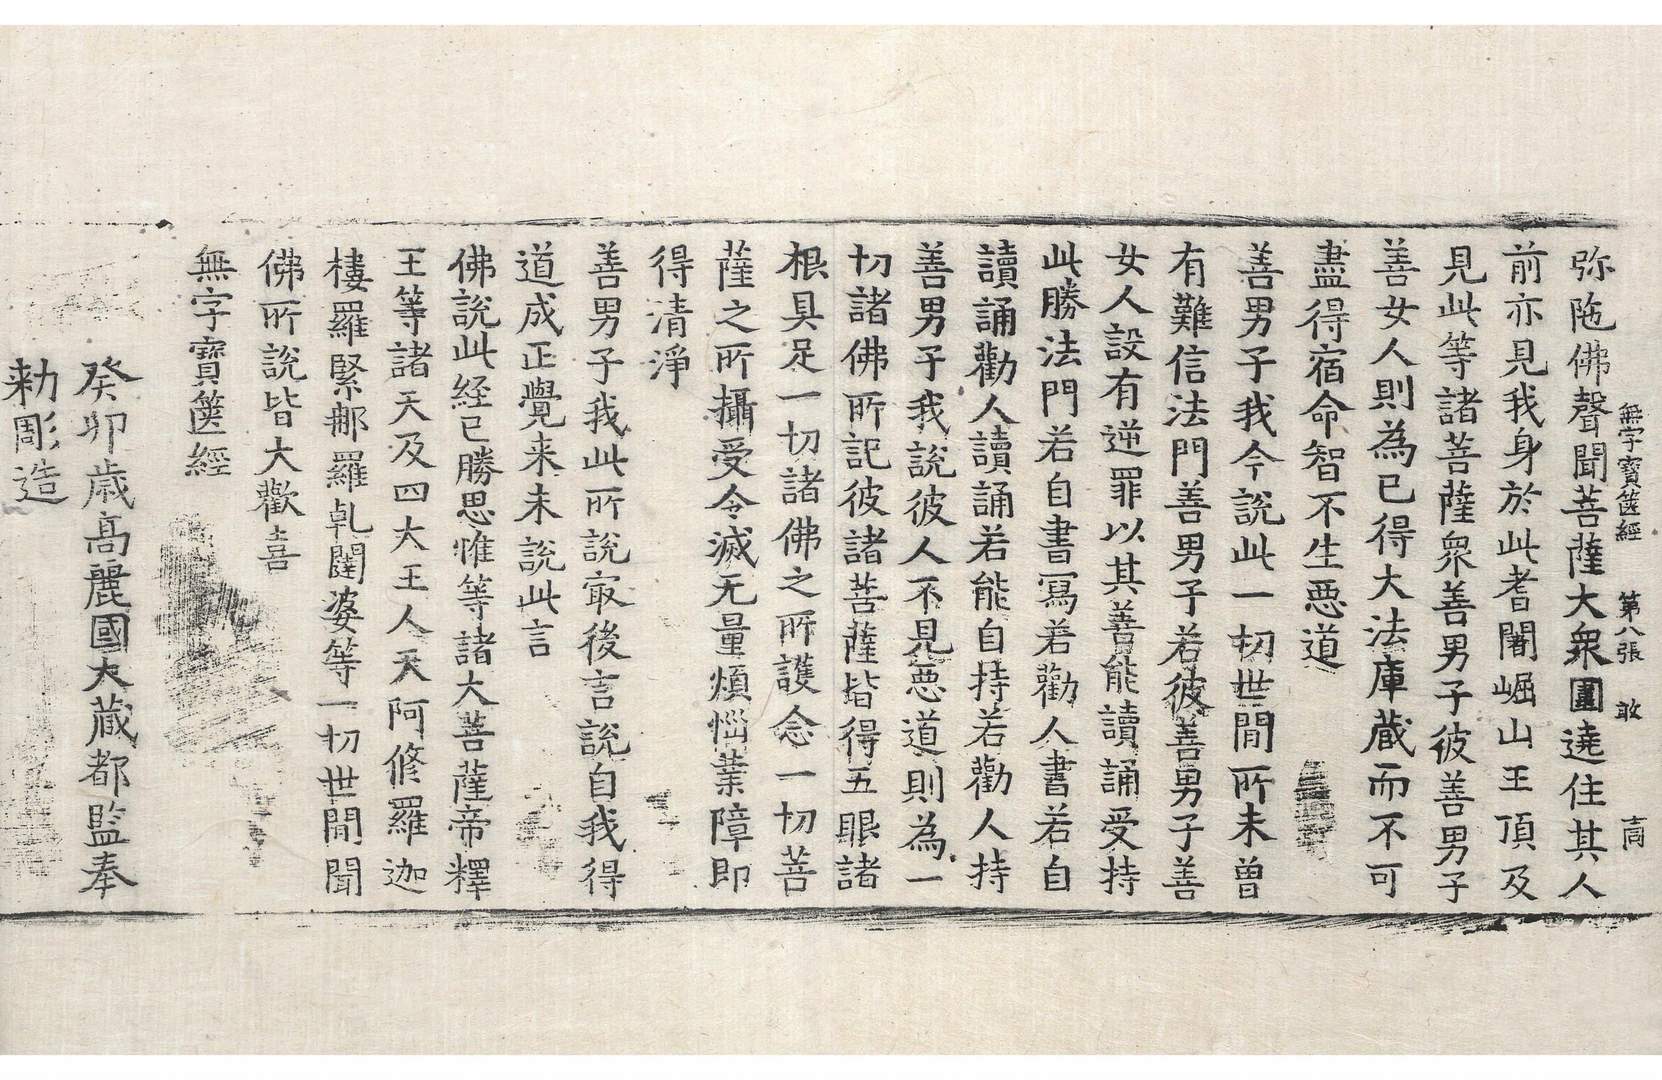 無字寶篋經　第八張　敢　高
弥陁佛聲聞菩薩大衆圍遶住其人
前亦見我身於此耆闍崛山王頂及
見此等諸菩薩衆善男子彼善男子
善女人則為已得大法庫藏而不可
盡得宿命智不生惡道
善男子我今說此一切世間所未曾
有難信法門善男子若彼善男子善
女人設有逆罪以其善能讀誦受持
此勝法門若自書寫若勸人書若自
讀誦勸人讀誦若能自持若勸人持
善男子我說彼人不見惡道則為一
切諸佛所記彼諸菩薩皆得五眼諸
根具足一切諸佛之所護念一切菩
薩之所攝受令滅无量煩惱業障即
得清淨
善男子我此所說㝡後言說自我得
道成正覺来未說此言
佛說此経已勝思惟等諸大菩薩帝釋
王等諸天及四大王人天阿修羅迦
樓羅緊那羅乹闥婆等一切世間聞
佛所說皆大歡喜
無字寶篋經
癸卯歳高麗國大藏都監奉
勅彫造